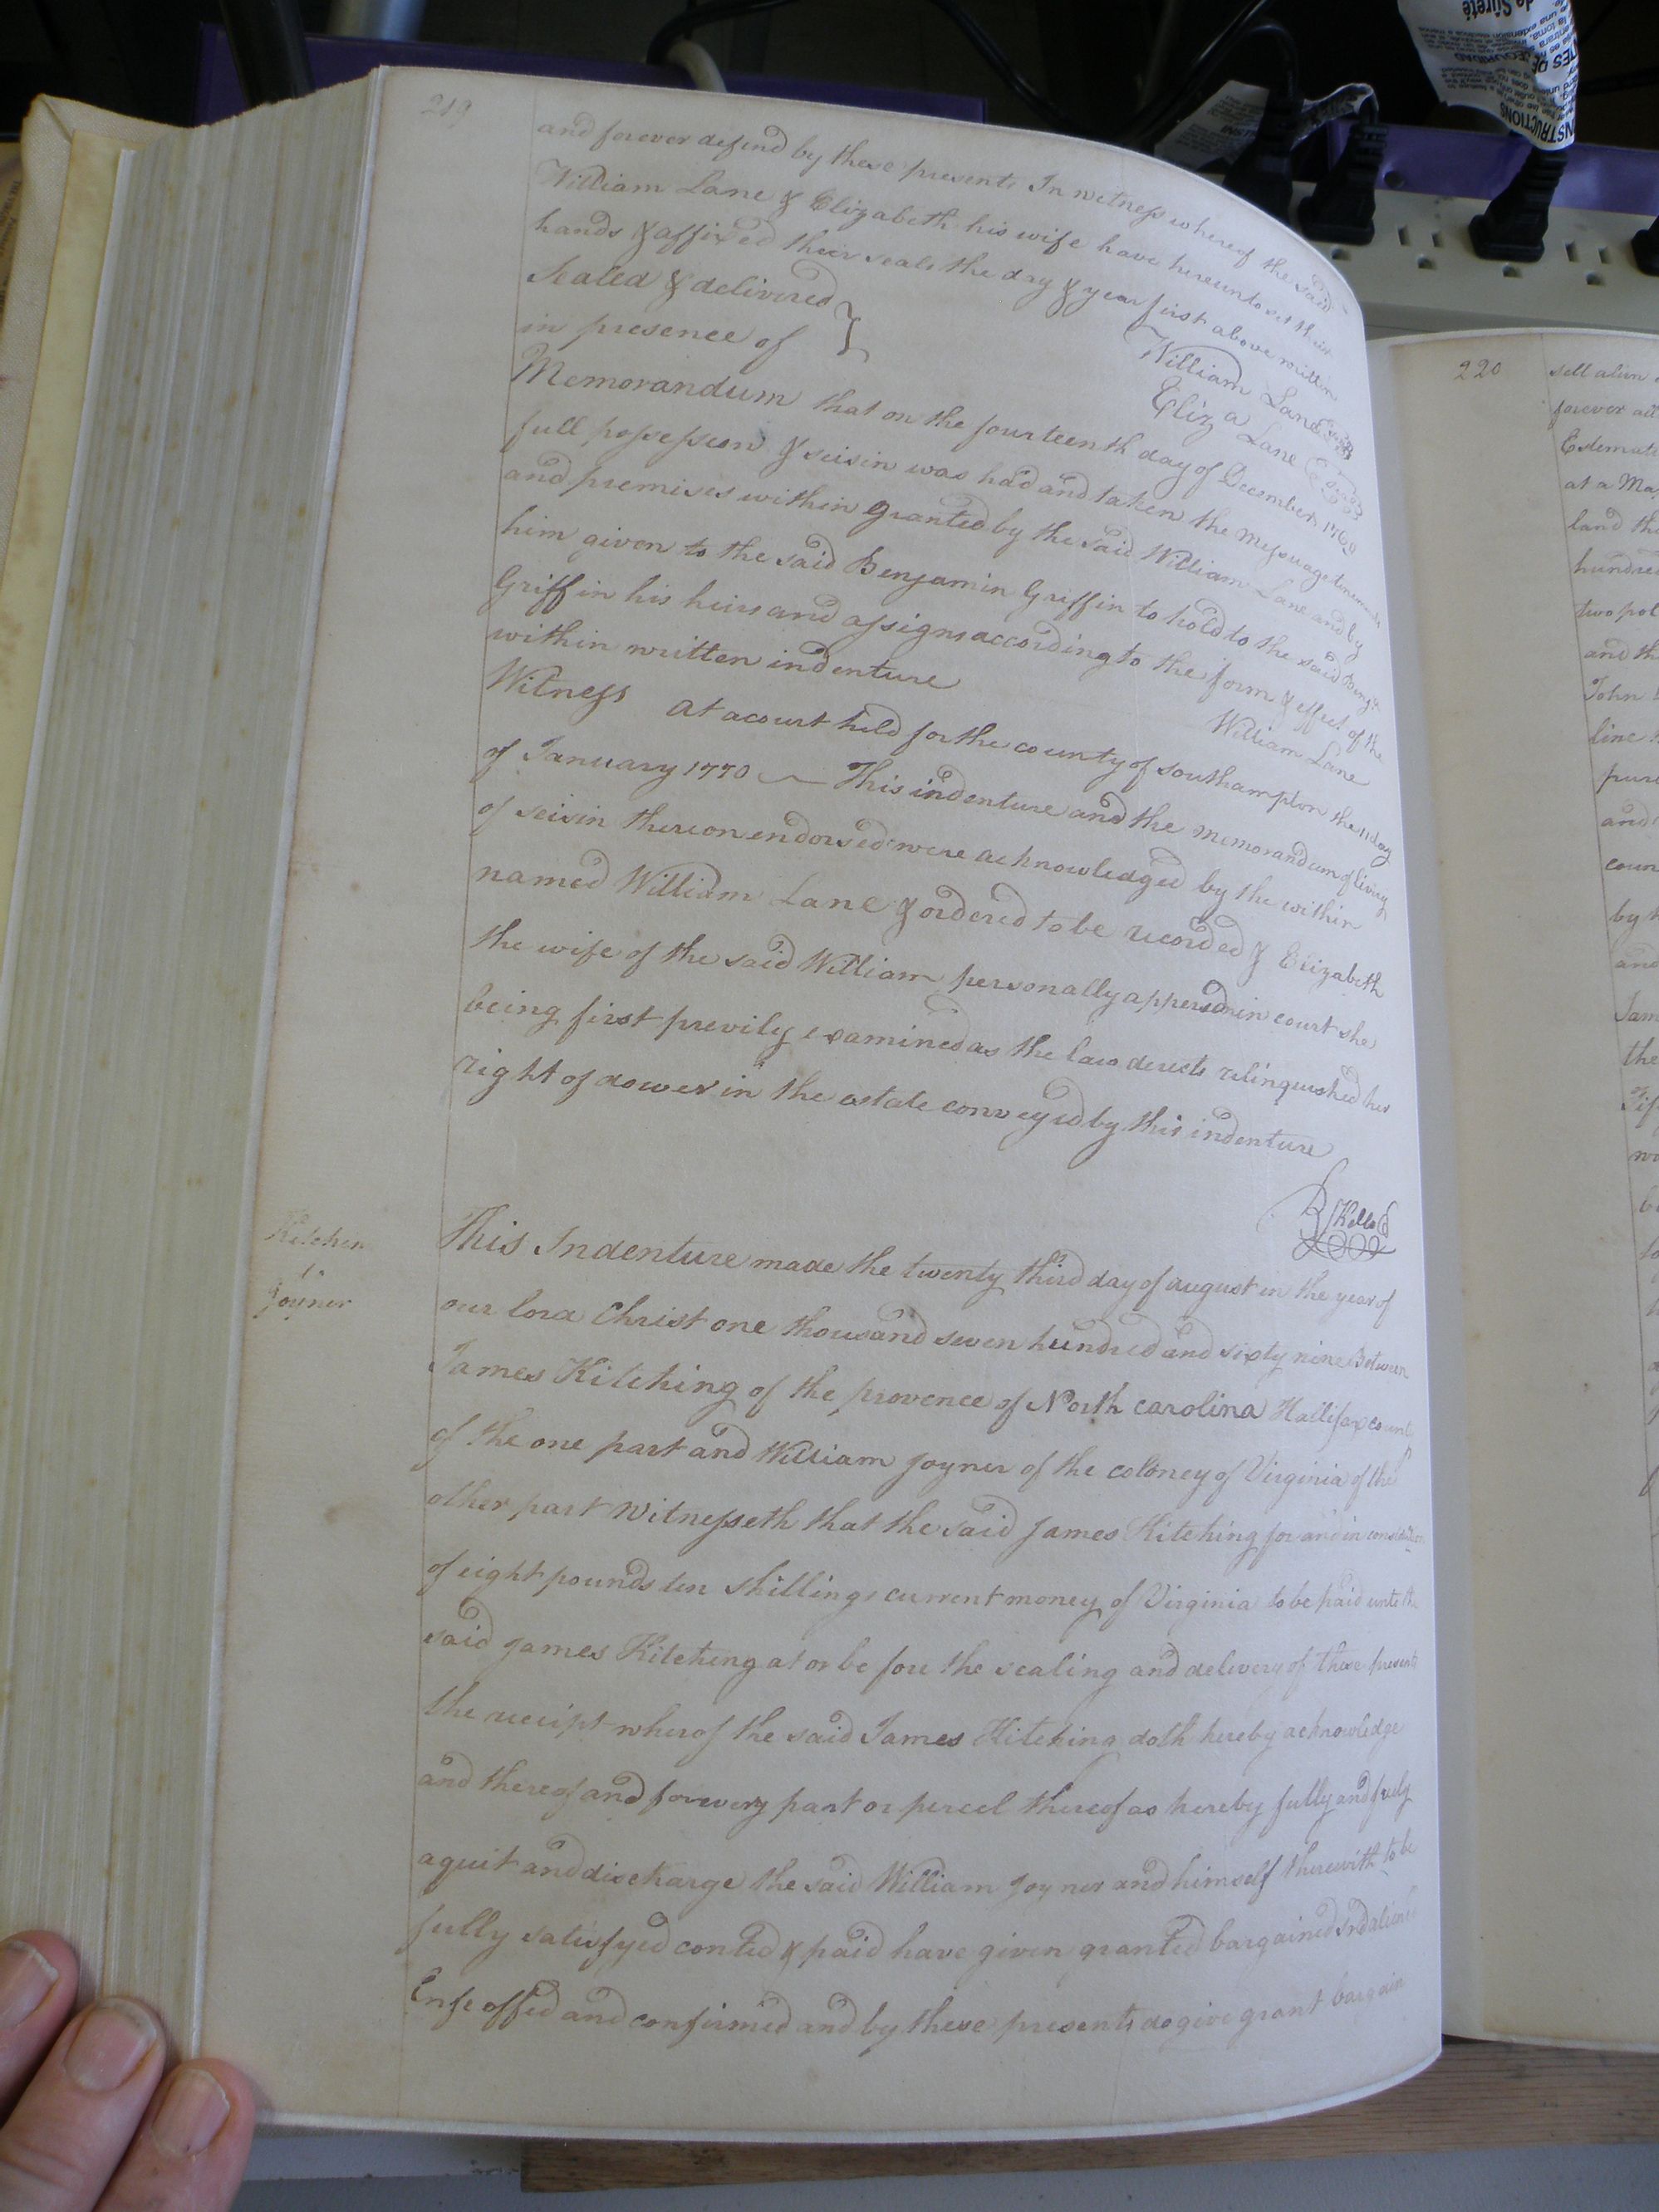 219
and forever defend by these presents In witness whereof the said
William Lane & Elizabeth his wife have hereunto set their
hands & affixed their seals the day & year first above written
Sealed & delivered
in presence of
William Lane
Eliza Lane
Memorandum that on the fourteenth day of December 1769
full possession & seisin was had and taken the messuage tenements
and premises within granted by the said William Lane and by
him given to the said Benjamin Griffin to hold to the said Benja
Griffin his heirs and assigns according to the form & effect of the
within written indenture
William Lane
Witness
At a court held for the county of Southampton the 11 day
of January 1770 This indenture and the memorandum of livery
of seisin thereon endorsed were acknowledged by the within
named William Lane & ordered to be recorded & Elizabeth
the wife of the said William personally appersd in court she
being first previly examined as the law derects relinquished her
right of dower in the estate conveyed by this indenture
R Kello
Kitchin
to
Joyner
This Indenture made the twenty third day of august in the year of
our lord Christ one thousand seven hundred and sixty nine Between
James Kitching of the provence of North carolina Hallifax county
of the one part and William Joyner of the coloney of Virginia of the
other part Witnesseth that the said James Kitching for and in consideration
of eight pounds ten shillings current money of Virginia to be paid unto the
said James Kitching at or be fore the sealing and delivery of these presents
the receipt wherof the said James Kitching doth hereby acknowledge
and thereof and for every part or percel thereof as hereby fully and fruly
aquit and discharge the said William Joyner and himself therewith to be
fully satisfyed conted & paid have given granted bargained
Enfeoffed and confirmed and by these presents do give grant bargain
220
sell alien
forever all
at a
land
hundred
two pol
and th
John
line
and
coun
by
and
Jam
the